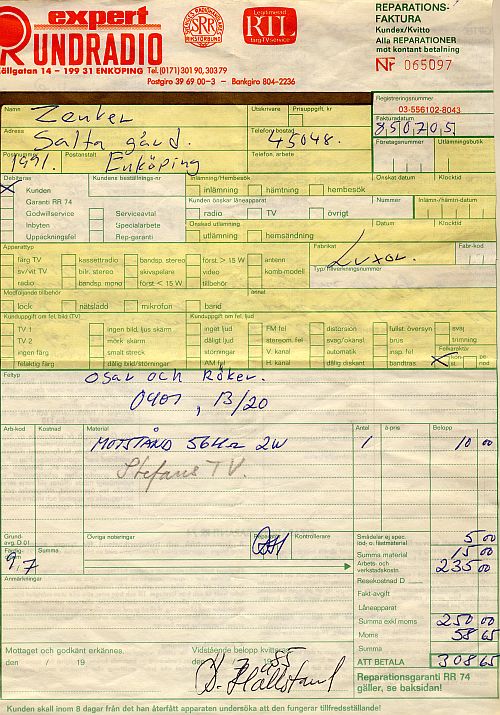 expert
RUNDRADIO
Källgatan 14 – 199 31 ENKÖPING Tel. (0171) 301 90, 303 79
Postgiro 39 69 00-3 – Bankgiro 804-2236
SRR
RIKSFÖRBUND
Legitimerad
RTL
färg TV-service
REPARATIONS-
FAKTURA
Kundex/Kvitto
Alla REPARATIONER
mot kontant betalning
Nr 065097
Registreringsnummer
03-556102-8043
Namn Zenker Utskrivare Prisuppgift, kr Fakturadatum
850705
Adress Salta gård. Telefon bostad 45048. Företagsnummer Utlämningsbutik
Postnummer Postanstalt Telefon, arbete
1991. Enköping
Debiteras Kundens beställnings-nr Inlämning/Hembesök Önskat datum Klocktid
x Kunden inlämning hämtning hembesök
Garanti RR 74 Kunden önskar låneapparat Nummer Inlämn-/hämtn-datum
Godwillservice Serviceavtal radio TV övrigt
Inbyten Specialarbete Önskad utlämning Datum Klocktid
Uppäckningsfel Rep-garanti utlämning hemsändning
Apparattyp Fabrikat Fabr-kod
Luxor
färg TV kassettradio bandsp. stereo först. > 15 W antenn
sv/vit TV bilr. stereo skivspelare video kombi-modell Typ/Tillverkningsnummer
radio bandsp. mono först. < 15 W tillbehör
Medföljande tillbehör annat
lock nätsladd mikrofon band
Kunduppgift om fel, bild (TV) Kunduppgift om fel, ljud
TV 1 ingen bild, ljus skärm inget ljud FM fel distorsion fullst. översyn svaj
TV 2 mörk skärm dåligt ljud stereom. fel svag/okänsl. brus trimning
ingen färg smalt streck störningar V. kanal automatik insp. fel Felkaraktär
felaktig färg dålig bild/störningar AM fel H. kanal dålig diskant bandtras. x
Feltyp
Osar och Röker.
0401, 13/20
Arb-kod Kostnad Material Antal à-pris Belopp
MOTSTÅND 56Hz 2W 1 10 00
Stefans TV.
Grund-
avg. D 01 Övriga noteringar Reparatör Kontrollerare Smådelar ej spec.
löd- o. fästmaterial 5 00
Färdig- Summa Summa material 15 00
9,7 Arbets- och
verkstadskostn. 235 00
Anmärkningar Resekostnad D
Fakt-avgift
Låneapparat
Summa exkl moms 250 00
Moms 58 65
Mottaget och godkänt erkännes, Vidstående belopp kvitteras Summa
den / 19 den / 19 ATT BETALA 308 65
Reparationsgaranti RR 74
gäller, se baksidan!
Kunden skall inom 8 dagar från det han återfått apparaten undersöka att den fungerar tillfredsställande!